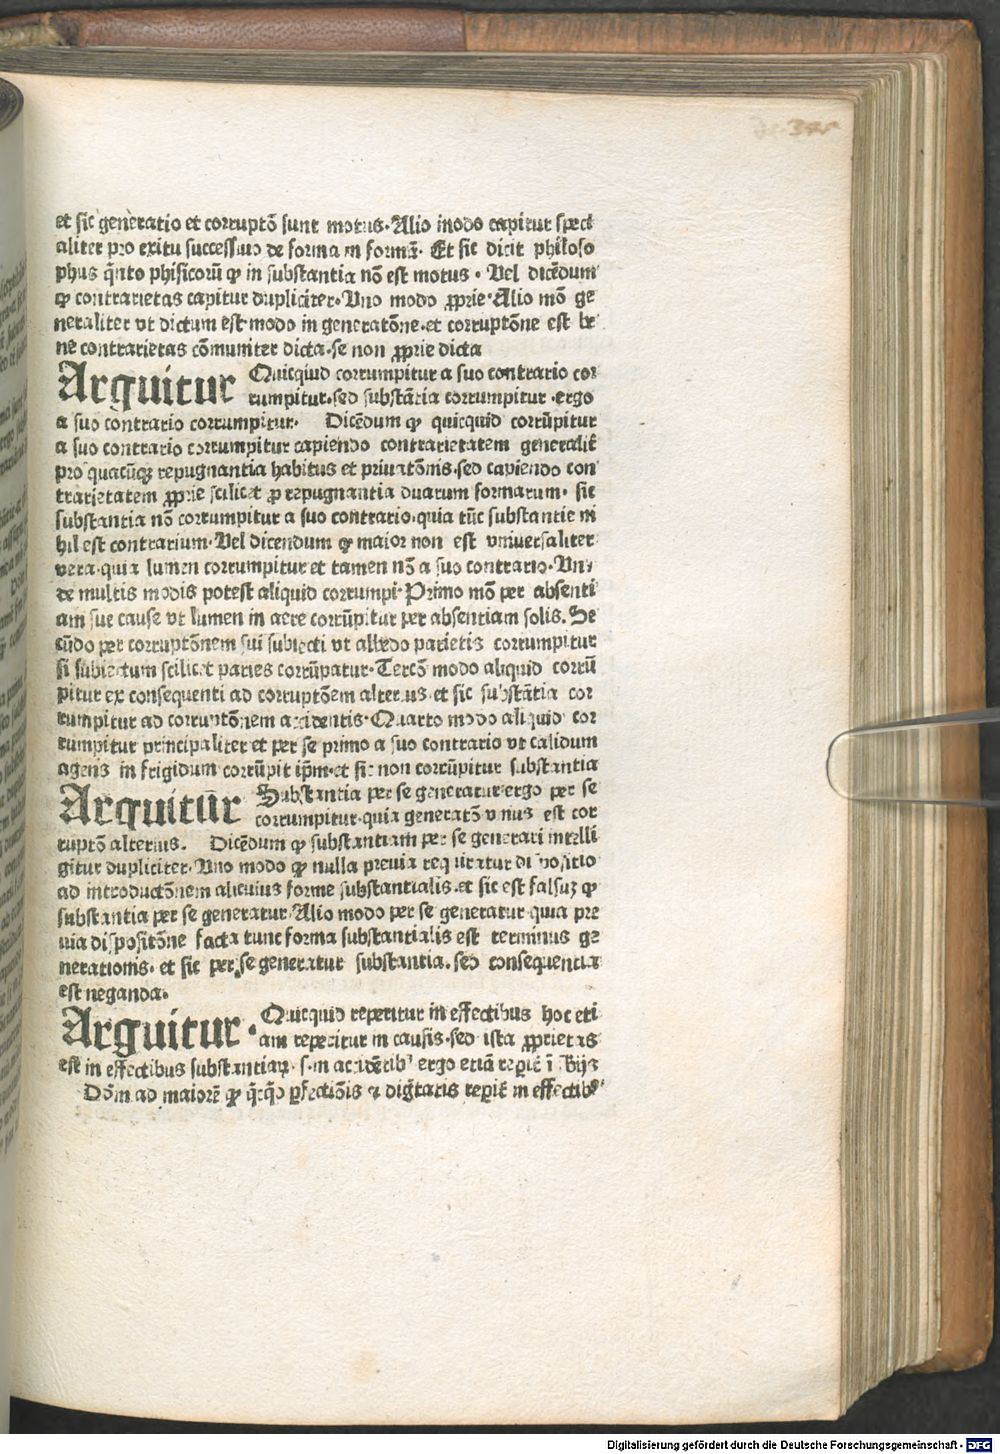 et sic generatio et corruptō sunt motus. Alio modo capitur speci
aliter pro exitu successiuo de forma in formā. Et sic dicit philoso
phus q̄nto phisicorū ꝙ in substantia nō est motus. Vel dicēdum
ꝙ contrarietas capitur dupliciter. Vno modo ꝓprie. Alio mō ge
neraliter vt dictum est modo in generatōne. et corruptōne est be
ne contrarietas cōmuniter dicta. se non ꝓprie dicta
Arguitur Quicquid corrumpitur a suo contrario cor
rumpitur. sed substātia corrumpitur. ergo
a suo contrario corrumpitur. Dicēdum ꝙ quicquid corrūpitur
a suo contrario corrumpitur capiendo contrarietatem generalit̄
pro quacūqꝫ repugnantia habitus et priuatōnis. sed capiendo con
trarietatem ꝓprie scilicet ꝓ repugnantia duarum formarum. sic
substantia nō corrumpitur a suo contrario. quia tūc substantie ni
hil est contrarium. Vel dicendum ꝙ maior non est vniuersaliter
vera. quia lumen corrumpitur et tamen nō a suo contrario. Vnꝰ
de multis modis potest aliquid corrumpi. Primo mō per absenti
am sue cause vt lumen in aere corrūpitur per absentiam solis. Se
cūdo per corruptōnem sui subiecti vt albedo parietis corrumpitur
si subiectum scilicet paries corrūpatur. Tercō modo aliquid corrū
pitur ex consequenti ad corruptōem alterius. et sic substātia cor
rumpitur ad corruptōnem accidentis. Quarto modo aliquid cor
rumpitur principaliter et per se primo a suo contrario vt calidum
agens in frigidum corrūpit ip̄m. et sic non corrūpitur substantia
Arguitur Substantia per se generatur ergo per se
corrumpitur. quia generatō vnius est cor
ruptō alterius. Dicēdum ꝙ substantiam per se generari intelli
gitur dupliciter. Vno modo ꝙ nulla preuia requiratur dispositio
ad introductōnem alicuius forme substantialis. et sic est falsuꝫ ꝙ
substantia per se generatur. Alio modo per se generatur quia pre
uia dispositōne facta tunc forma substantialis est terminus ge
nerationis. et sic per se generatur substantia. sed consequentia
est neganda.
Arguitur. Quicquid reperitur in effectibus hoc eti
am reperitur in causis. sed ista ꝓprietas
est in effectibus substantiaꝝ. s. in accidētibꝰ ergo etiā rep̄it̄ ī
Dōm ad maiorē ꝙ q̄cq̄d ꝑfectiōis ⁊ dignitatis rep̄it̄ in effectibꝰ
Digitalisierung gefördert durch die Deutsche Forschungsgemeinschaft - DFG